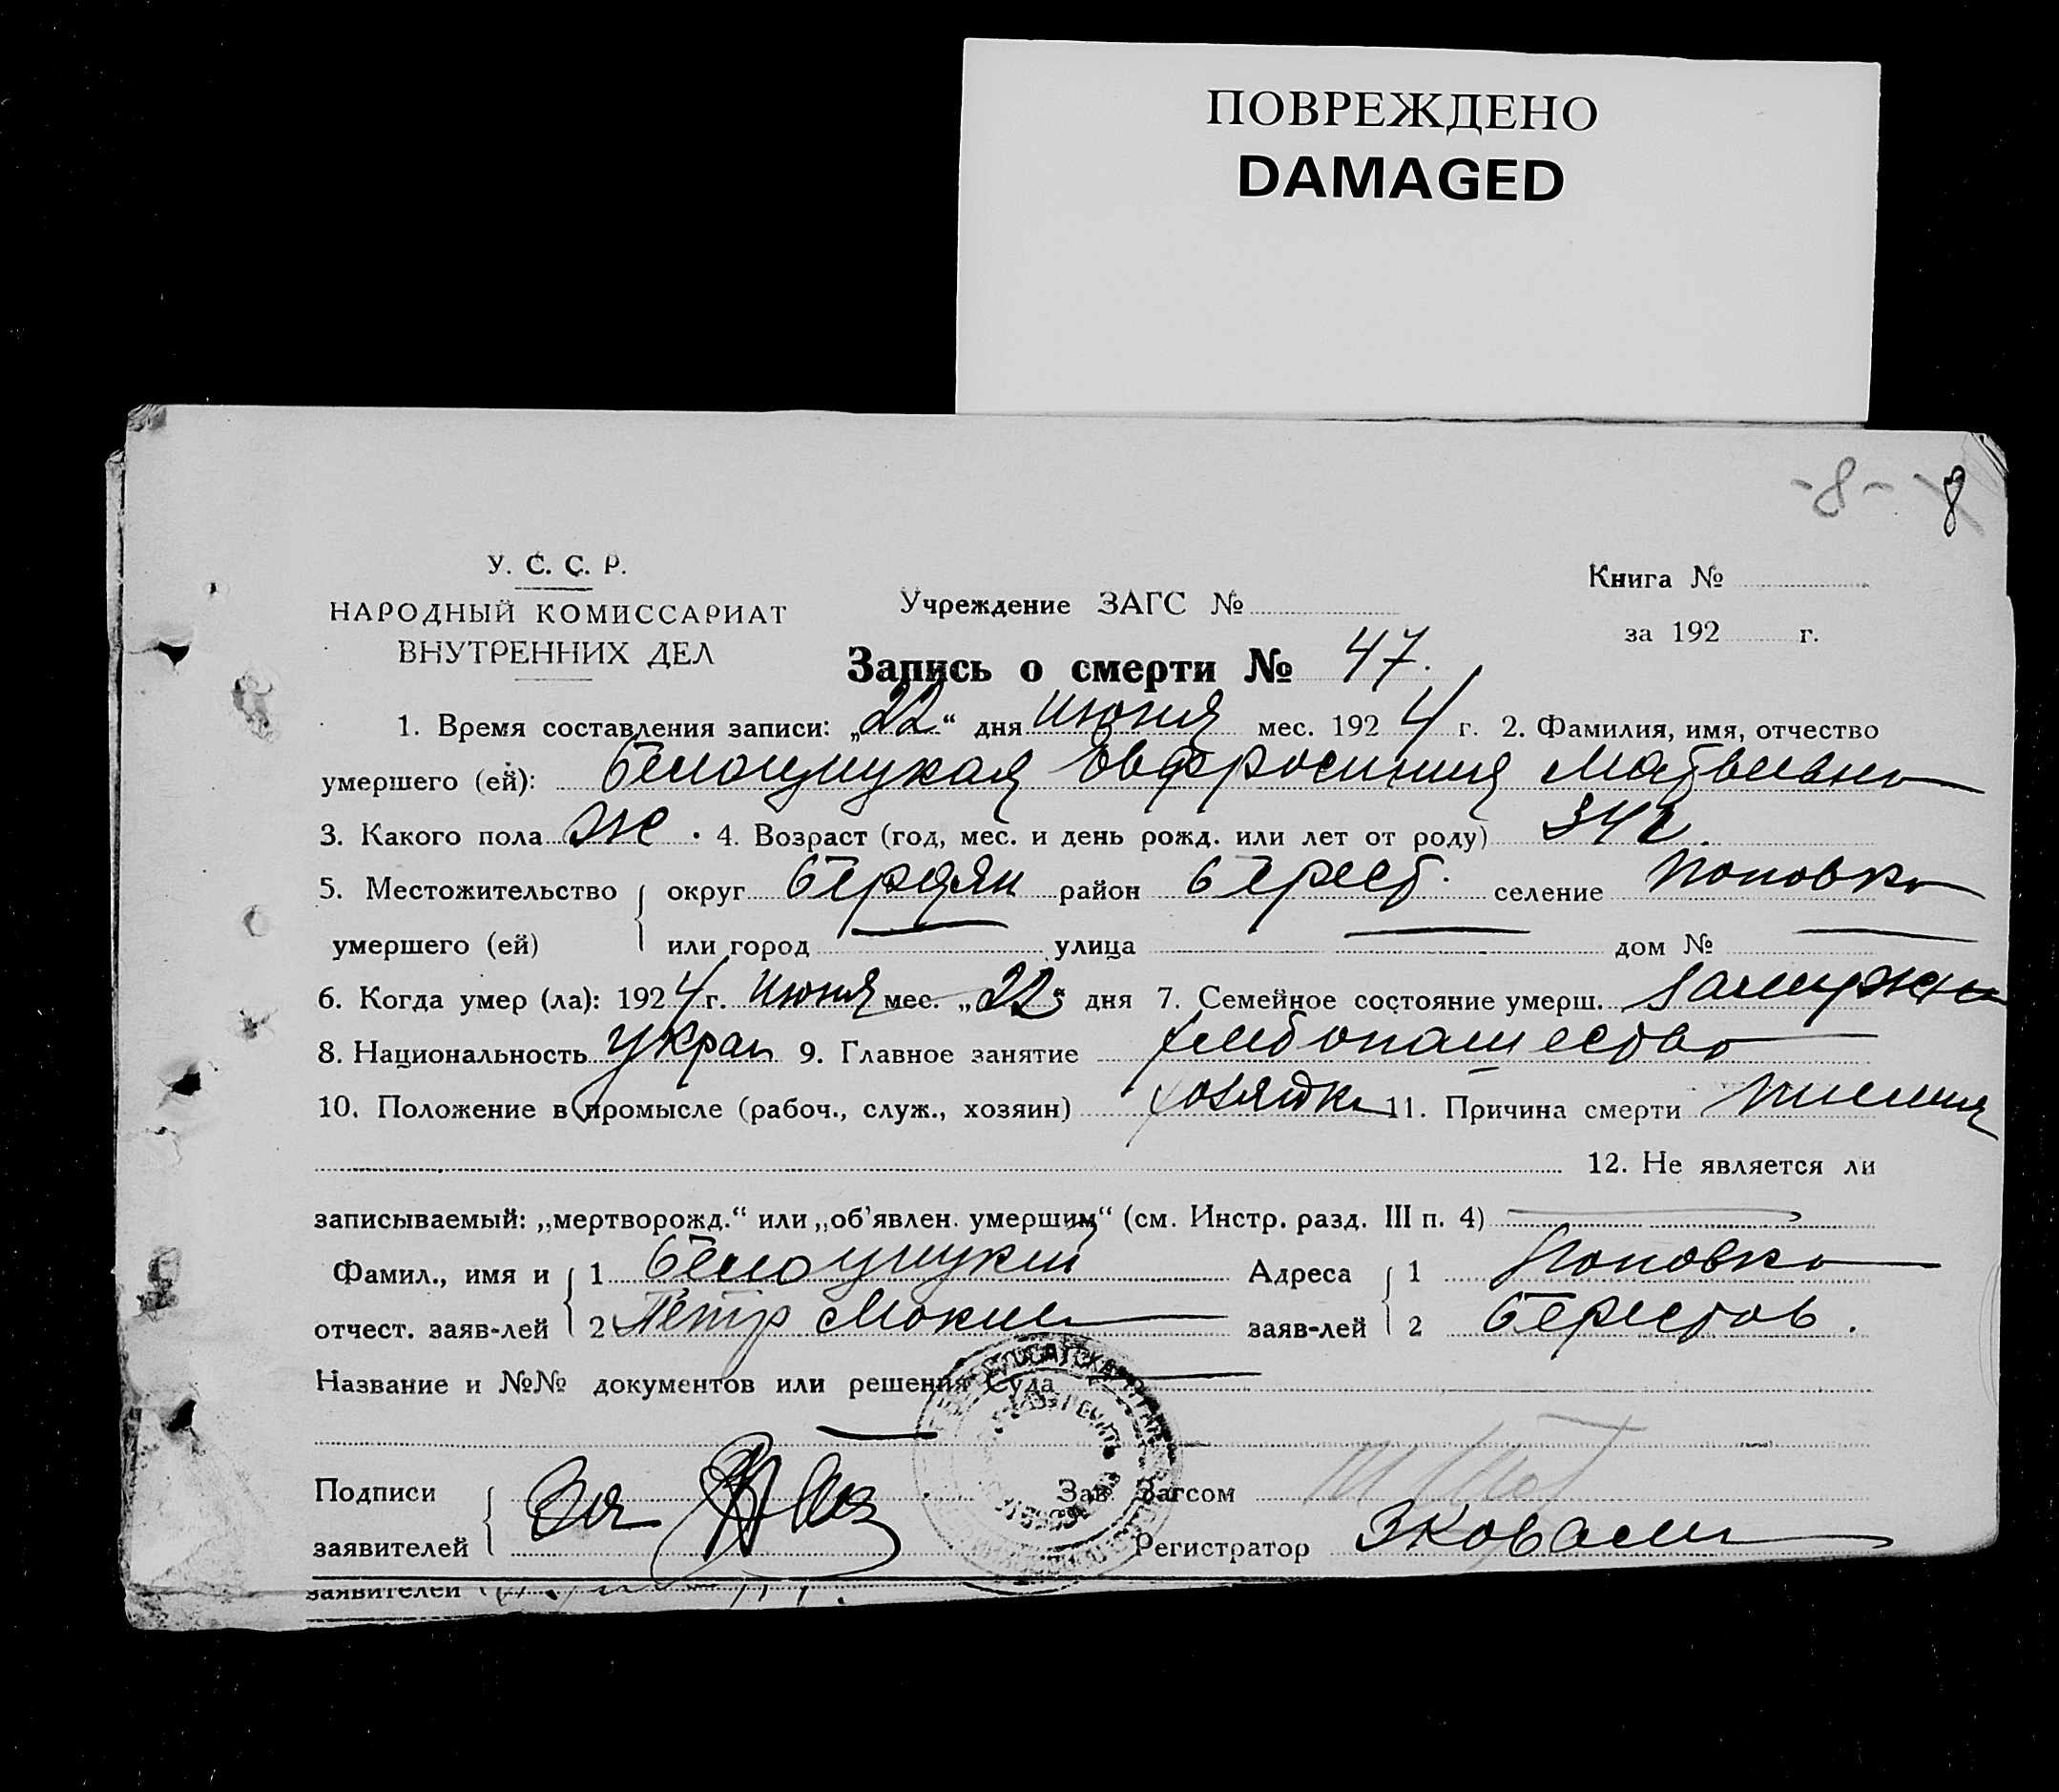 ПОВРЕЖДЕНО
DAMAGED
-8- 8
У. С. С. Р.
НАРОДНЫЙ КОМИССАРИАТ
ВНУТРЕННИХ ДЕЛ
Учреждение ЗАГС №
Книга №
за 192 г.
Запись о смерти № 47.
1. Время составления записи: „22“ дня июня мес. 1924 г. 2. Фамилия, имя, отчество
умершего (ей): Белоцицкая Евфросиния Матвеевна
3. Какого пола ж • 4. Возраст (год, мес. и день рожд. или лет от роду) 34 г.
5. Местожительство округ Бердян район Берест. селение Поповка
умершего (ей) или город — улица — дом № —
6. Когда умер (ла): 1924 г. июня мес. „22“ дня 7. Семейное состояние умерш. замужня
8. Национальность украи 9. Главное занятие хлебопашество
10. Положение в промысле (рабоч., служ., хозяин) хозяйка 11. Причина смерти
12. Не является ли
записываемый: „мертворожд.“ или „об’явлен. умершим“ (см. Инстр. разд. III п. 4) —
Фамил., имя и 1 Белоцицкий Адреса 1 Поповка
отчест. заяв-лей 2 Петр Мокии заяв-лей 2 Берестов.
Название и №№ документов или решения Суда —
Подписи Зав. Загсом
заявителей Регистратор ЗКоваль
заявителей